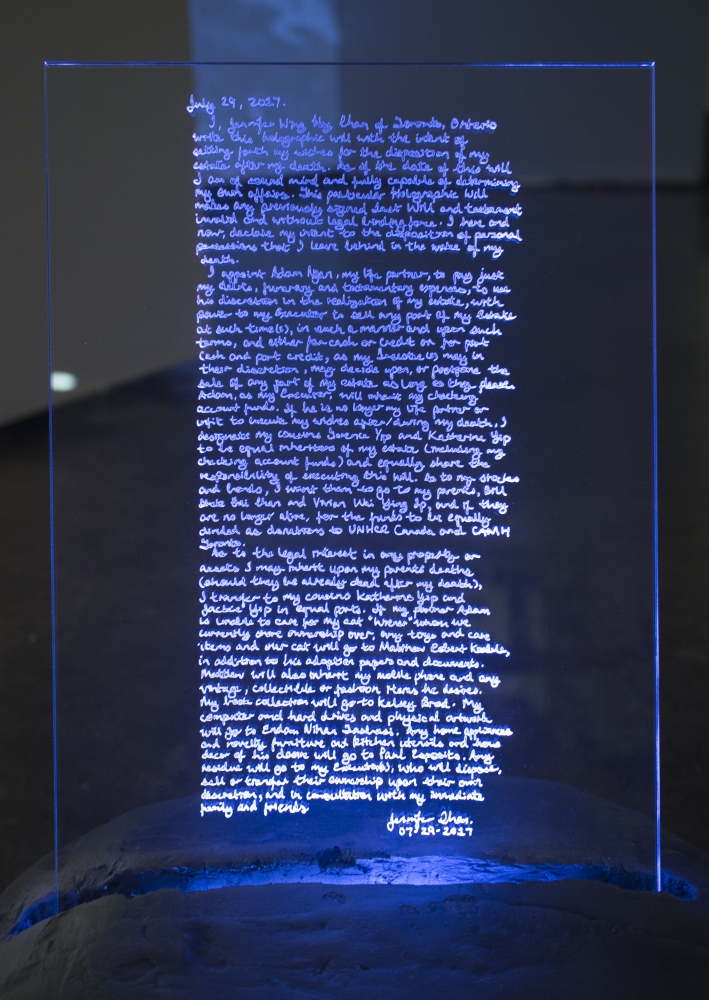 July 29, 2017.
I, Jennifer Wing Hay Chan of Toronto, Ontario
write this holographic will with the intent of
setting forth my wishes for the disposition of my
estate after my death. As of the date of this will
I am of sound mind and fully capable of determining
my own affairs. This particular holographic will
makes any previously signed Last Will and testament
invalid and without legal binding force. I here and
now, declare my intent to the disposition of personal
possessions that I leave behind in the wake of my
death.
I appoint Adam , my life partner, to pay just
my debts, funerary and testamentary expenses, to use
his discretion in the realization of my estate, with
power to my Executor to sell any part of my Estate
at such time(s), in such a manner and upon such
terms, and either for cash or credit or for part
cash and part credit, as my Executor(s) may in
their discretion, may decide upon, or postpone the
sale of any part of my estate as long as they please.
Adam, as my Executor, will inherit my checking
account funds. If he is no longer my life partner or
unfit to execute my wishes after/during my death, I
designate my cousins Yip and Katherine Yip
to be equal inheritors of my estate (including my
checking account funds) and equally share the
responsibility of executing this will. As to my stocks
and bonds, I want them to go to my parents, Bill
Chan and Vivian Wai Ying Ip, and if they
are no longer alive, for the funds to be equally
divided as donations to UNHCR Canada and CAMH
Toronto.
As to the legal interest in any property or
assets I may inherit upon my parents deaths
(should they be already dead after my death),
I transfer to my cousins Katherine Yip and
Jackie Yip in equal parts. If my partner Adam
is unable to care for my cat "Wiener" whom we
currently share ownership over, any toys and care
items and our cat will go to Matthew Robert
in addition to his adoption papers and documents.
Matthew will also inherit my mobile phone and any
vintage, collectible or fashion items he desires.
My book collection will go to Kelsey . My
computer and hard drives and physical artwork
will go to Erdem Nihat . Any home appliances
and novelty furniture and kitchen utensils and home
decor of his desire will go to Paul Esposito. Any
residue will go to my Executor(s), who will dispose,
sell or transfer their ownership upon their own
discretion, and in consultation with my immediate
family and friends.
Jennifer Chan.
07-29-2017